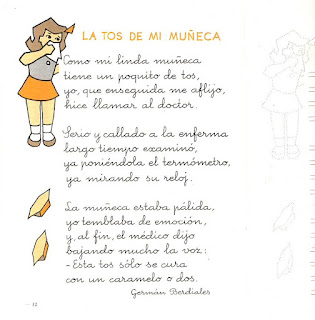 LA TOS DE MI MUÑECA
Como mi linda muñeca
tiene un poquito de tos,
yo, que enseguida me aflijo,
hice llamar al doctor.
Serio y callado a la enferma
largo tiempo examinó,
ya poniéndola el termómetro,
ya mirando su reloj.
La muñeca estaba pálida,
yo temblaba de emoción,
y, al fin, el médico dijo
bajando mucho la voz:
-Esta tos sólo se cura
con un caramelo o dos.
Germán Berdiales
12